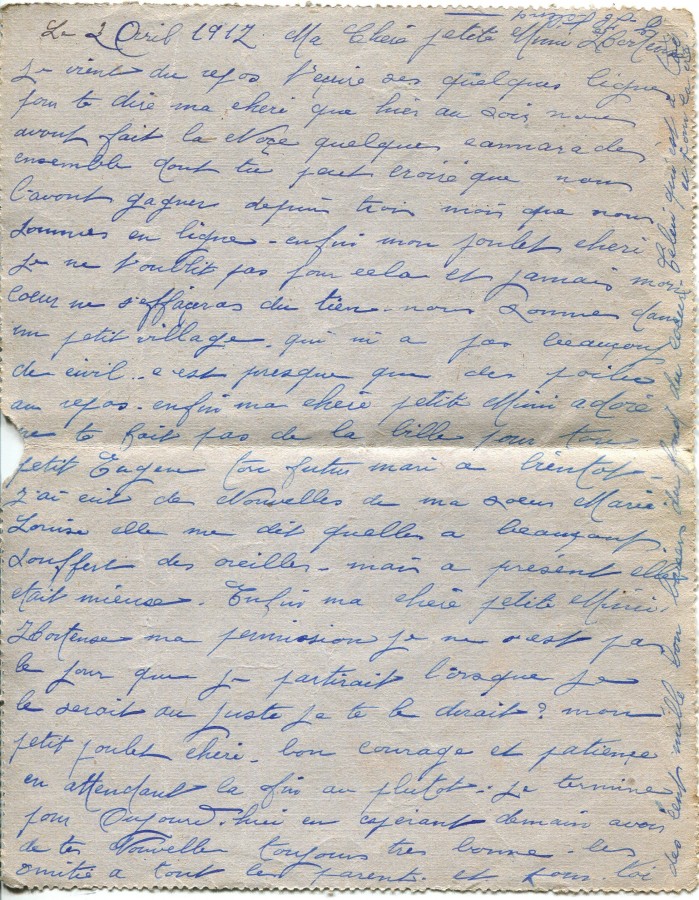 Le 2 Avril 1917 Ma Cheré petite Mimi Hortense
Je vient du repos t'ecrire ses quelques ligne
pour te dire ma cheri que hier au soir nous
avont fait la Noze quelques cannarades
ensemble dont tu peut croire que nous
l'avont gagner depuis trois mois que nous
sommes en ligne - enfin mon poulet cheri
Je ne t'oublit pas pour cela et jamais mon
Coeur ne s'effaceras du tien - nous sommes dans
un petit village - qui ni a pas beaucoup
de civil - c est presque que des poilus
au repos - enfin ma cheré petite Mimi adoré
ne te fait pas de la bille pour ton
petit Eugen ton futur mari a bientot
J'ai eut de Nouvelles de ma soeur Marie
Louise elle me dit quelles a beaucoup
souffert des oreilles - mais a présent elle
etait mieuse. Enfin ma cheré petite Mimi
Hortense ma permission je ne s'est pas
le jour que je partirait l'orsque je
le seroit au juste je te le dirait? mon
petit poulet cheri - bon courage et patience
en attendant la fin au plutot. je termine
pour Aujourd-hui en esperant demain avoir
de tes Nouvelles toujours tres bonne - les
amitié a tout les parent - et pour toi
des cent mille bon baisers du fond du coeur Celui qui est a